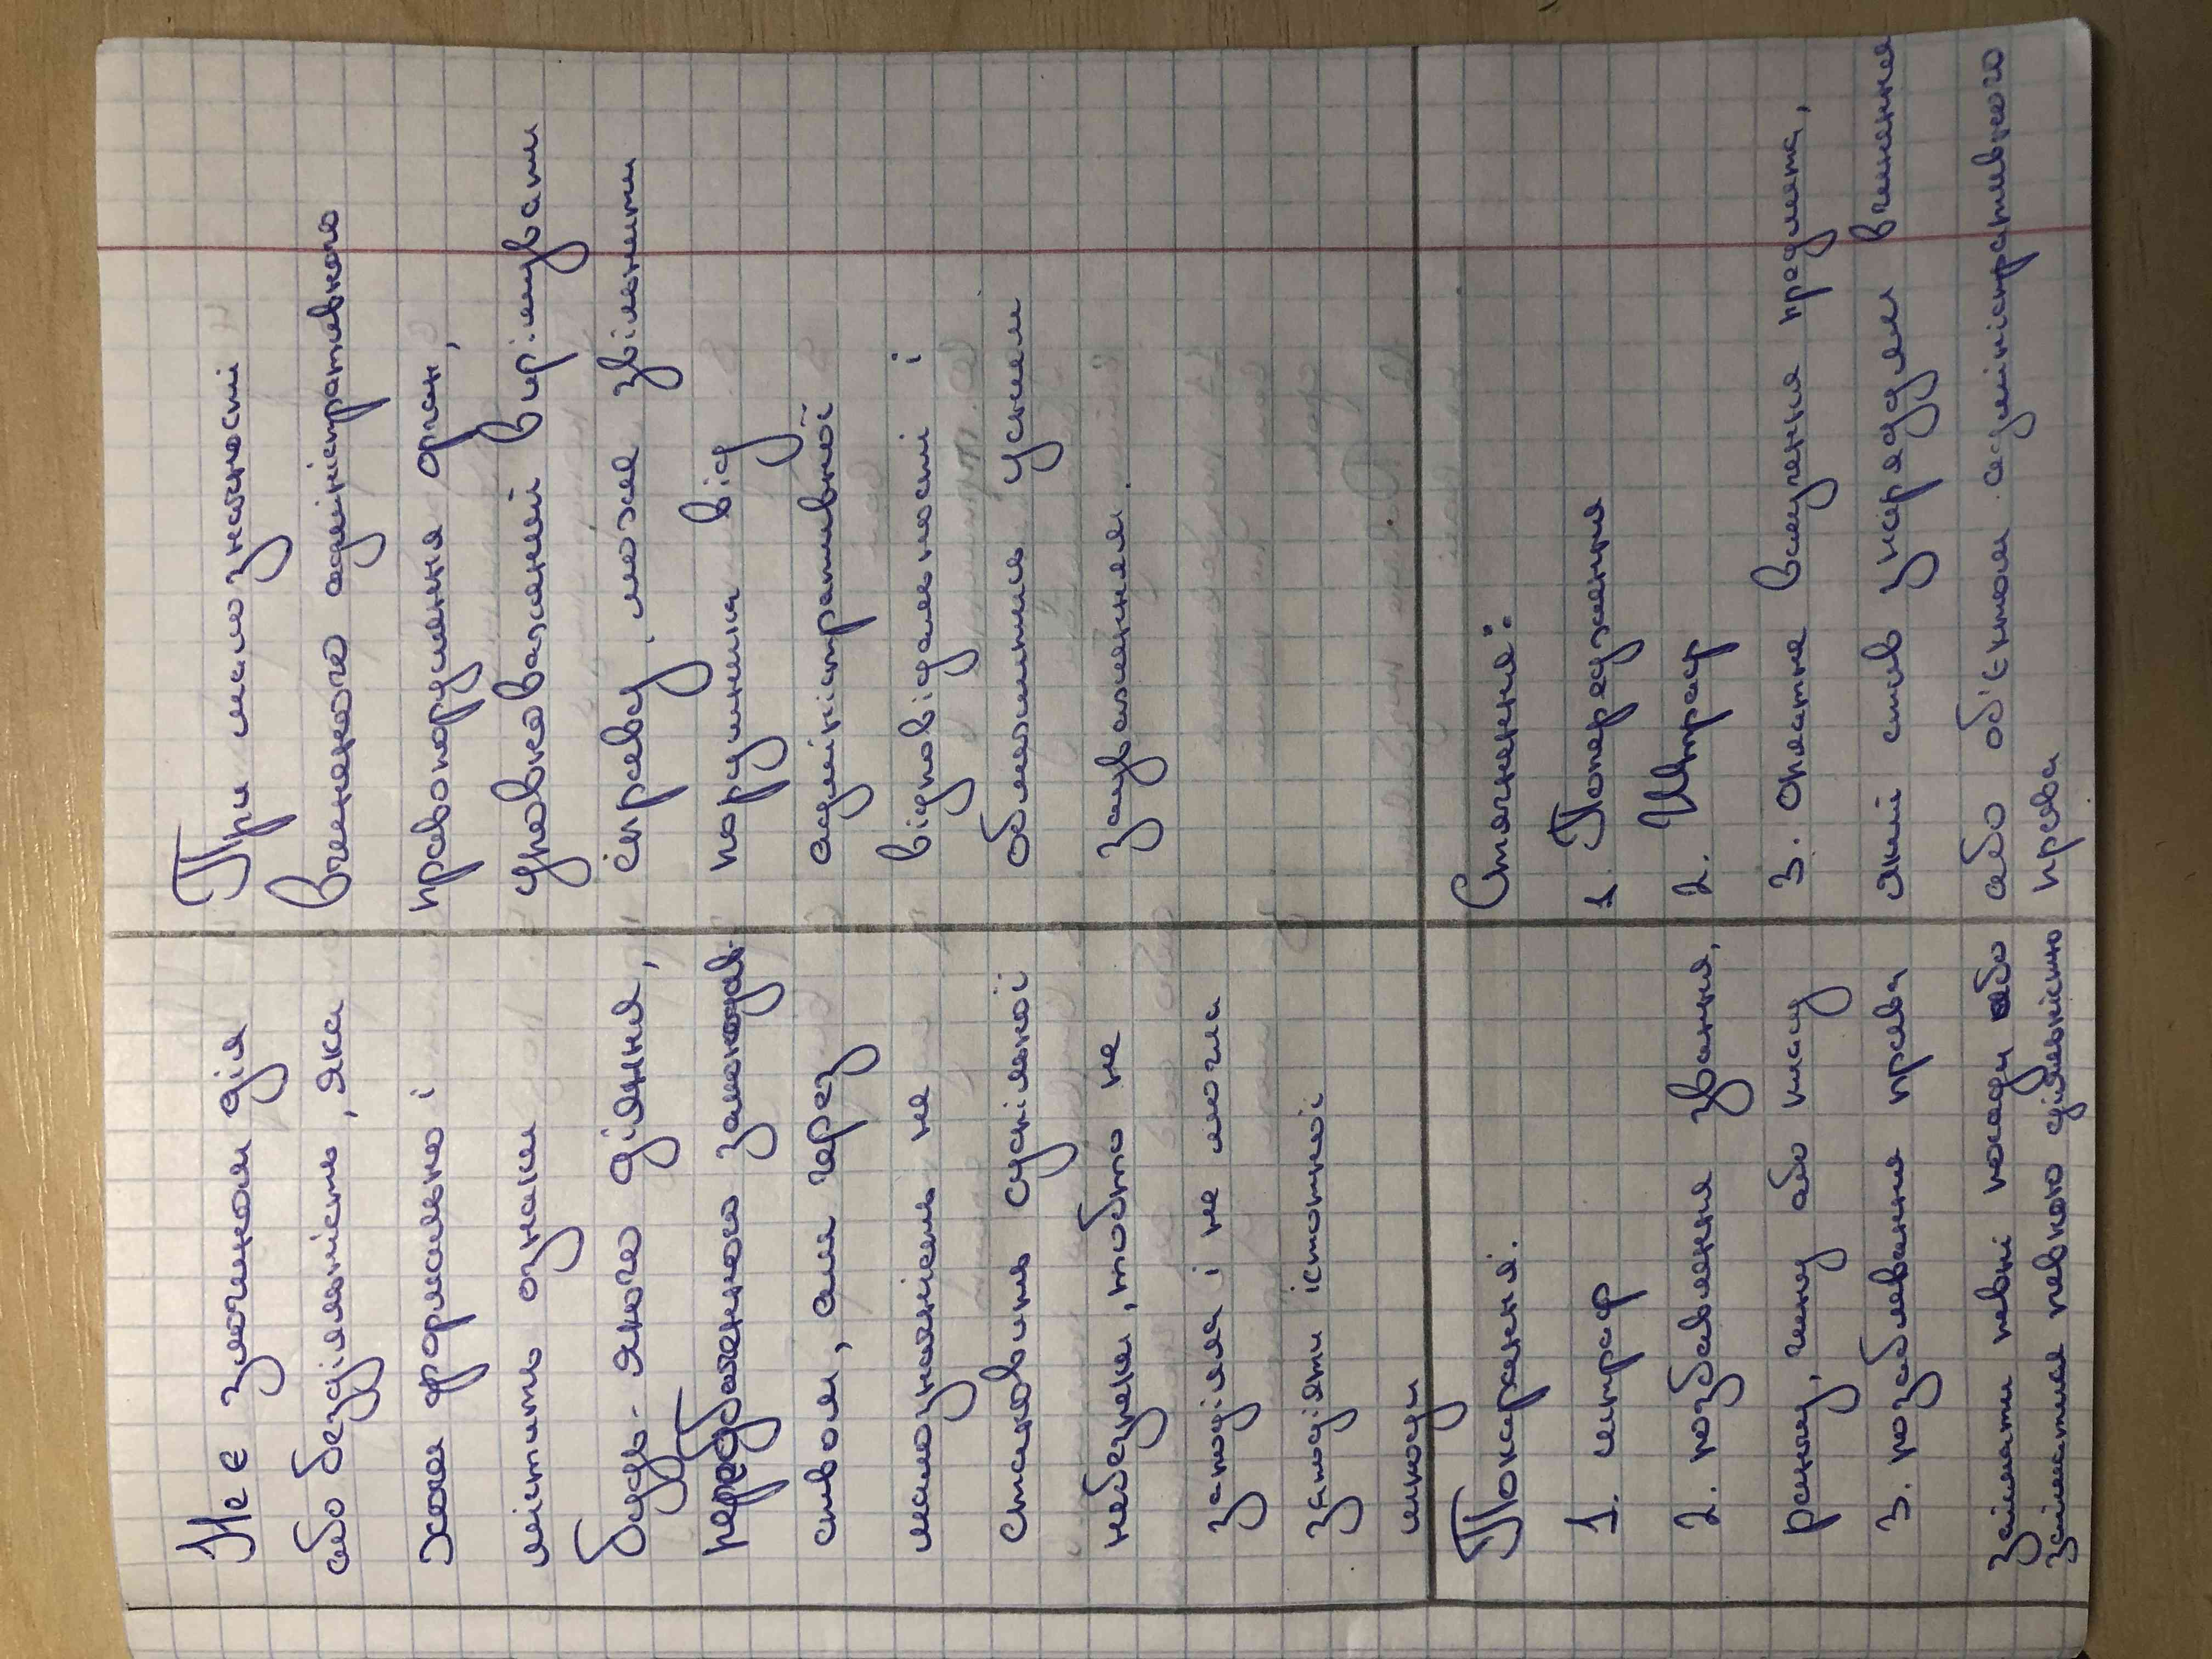 Не є злочином дія
або бездіяльність, яка
хоча формально і
містить ознаки
будь-якого діяння,
передбаченого законодав-
ством, али через
малозначність не
становить суспільної
небезпеки, тобто не
заподіяла і не могла
заподіяти істотної
шкоди
При малозначності
вчиненого адміністративного
правопорушення орган,
уповноважений вирішувати
справу, може звільнити
порушника від
адміністративної
відповідальності і
обмежитись усним
зауваженням.
Покарання:
1. штраф
2. позбавлення звання,
рангу, чину або класу
3. позбавлення права
займати певні посади або
займатися певною діяльністю
Стягнення:
1. Попередження
2. Штраф
3. Оплатне вилучення предмета,
який став знаряддям вчинення
або об'єктом адміністративного
права